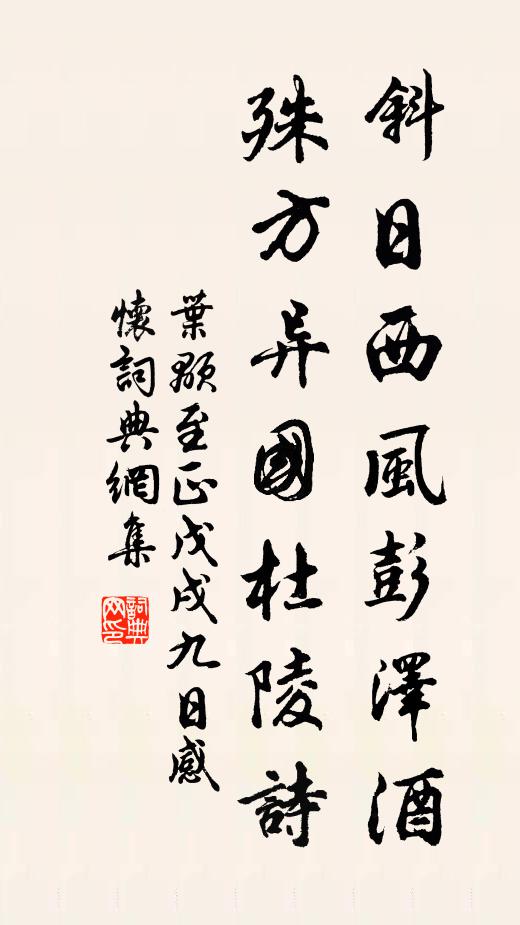 斜日西風彭澤酒
殊方异國杜陵詩
葉顒至正戊戌九日感
懷詞典網集
詞典
网印